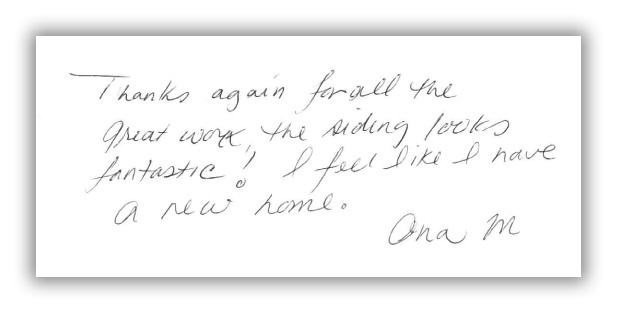 Thanks again for all the
great work, the siding looks
fantastic! I feel like I have
a new home.
Ana M